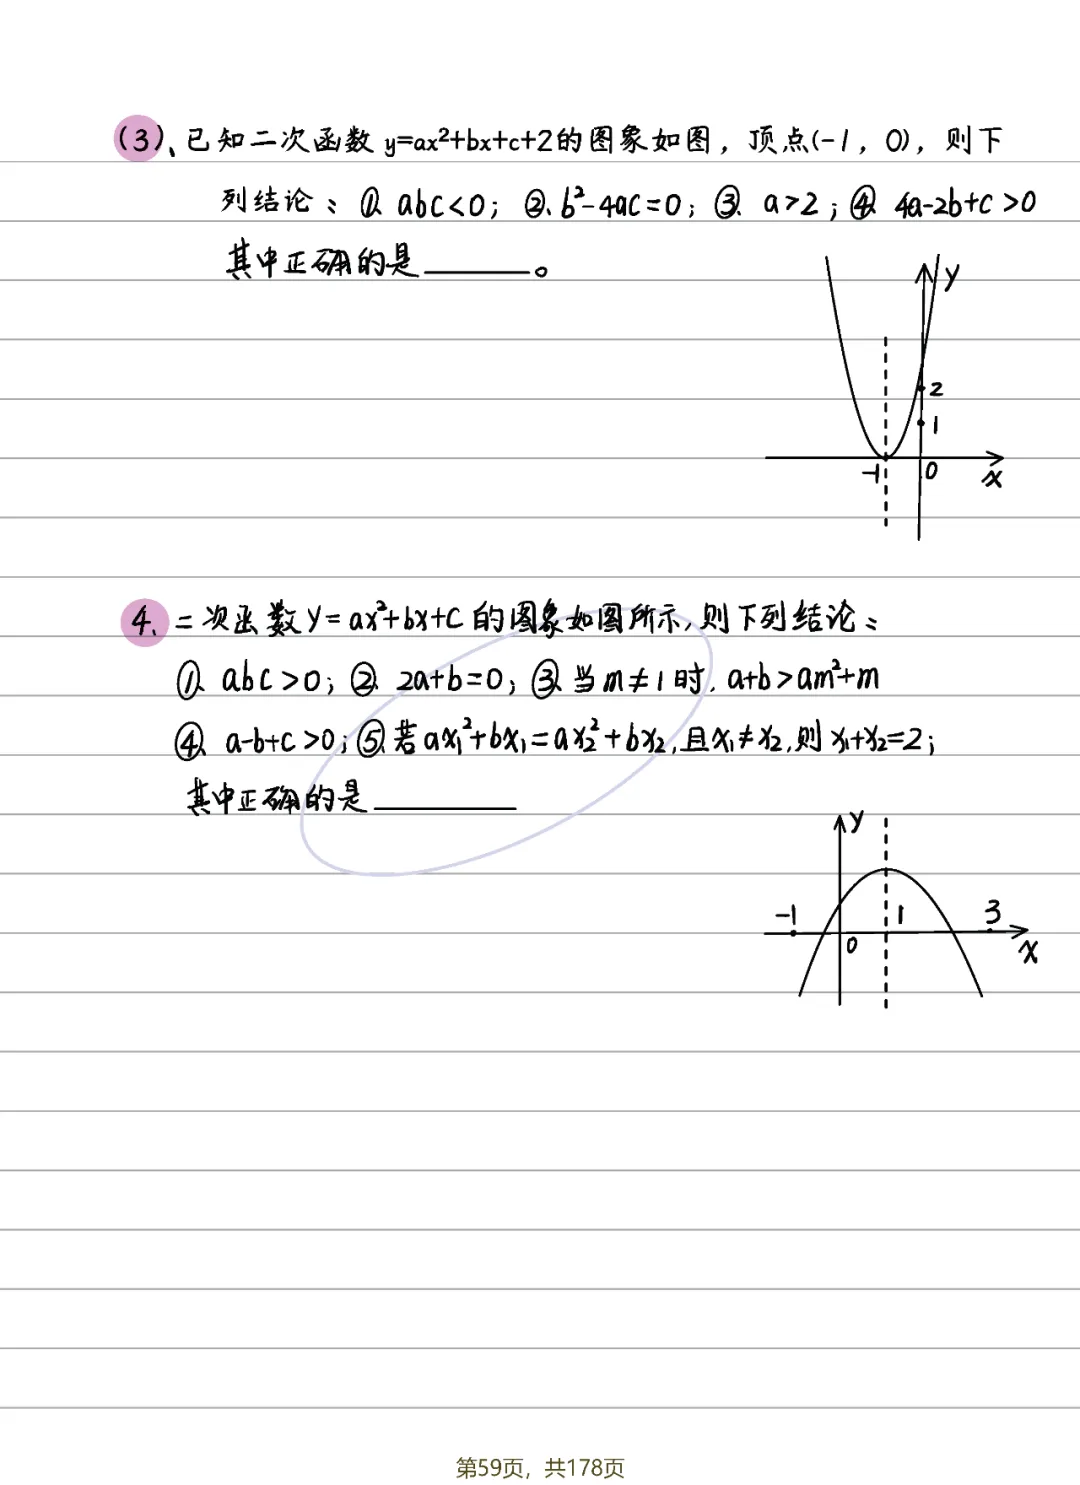 (3)、已知二次函数 y=ax²+bx+c+2的图象如图，顶点(-1，0)，则下
列结论：①、abc<0；②、b²-4ac=0；③、a>2；④、4a-2b+c>0
其中正确的是______。
y
2
1
-1
0
x
4、二次函数y=ax²+bx+c的图象如图所示，则下列结论：
①、abc>0；②、2a+b=0；③、当m≠1时，a+b>am²+m
④、a-b+c>0；⑤、若ax₁²+bx₁=ax₂²+bx₂，且x₁≠x₂，则x₁+x₂=2；
其中正确的是________
y
-1
0
1
3
x
第59页，共178页